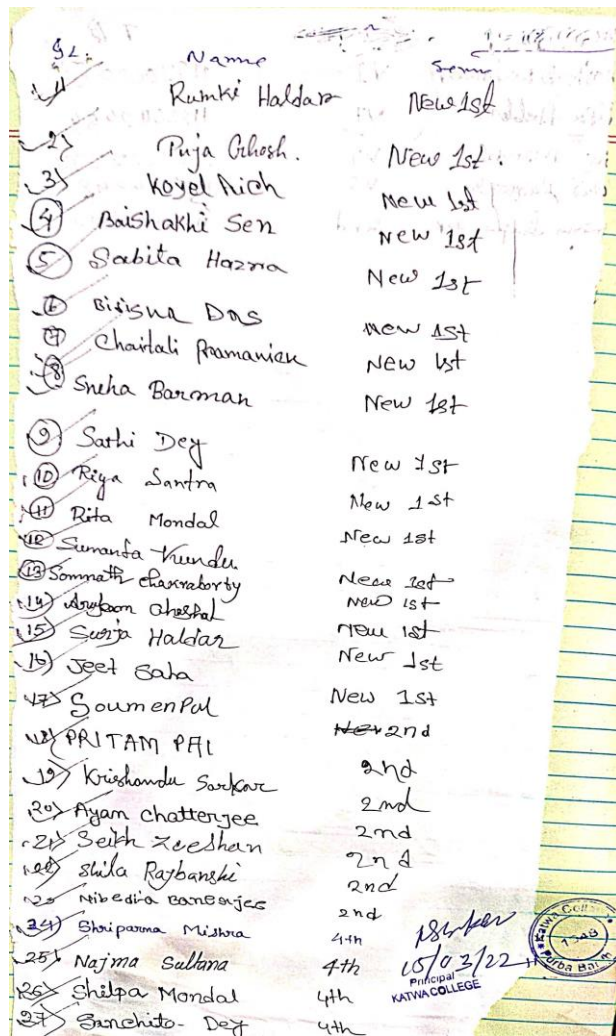 SL. Name Sem
1) Rumki Haldar New 1st
2) Puja Ghosh. New 1st.
3) Koyel Rich New 1st
4 Baishakhi Sen New 1st
5 Sabita Hazra New 1st
6 Das New 1st
7 Chaitali Pramanick New 1st
8 Sneha Barman New 1st
9 Sathi Dey New 1st
10 Riya Santra New 1st
11 Rita Mondal New 1st
12 Sumanta Kundu New 1st
13 Somnath Chakraborty New 1st
14) Ghoshal New 1st
15) Surja Haldar New 1st
16) Jeet Saha New 1st
17) Soumen Pal New 1st
18) PRITAM PAL 2nd
19) Krishandu Sarkar 2nd
20) Ayan Chatterjee 2nd
21) Seikh Zeeshan 2nd
22) Shila Rajbanshi 2nd
23 Nibedia Banerjee 2nd
24) Shriparna Mishra 4th
25) Najma Sultana 4th
26) Shilpa Mondal 4th
27) Sanchita Dey 4th
15/03/22
Principal
KATWA COLLEGE
Katwa College
1948
Purba Bardhaman